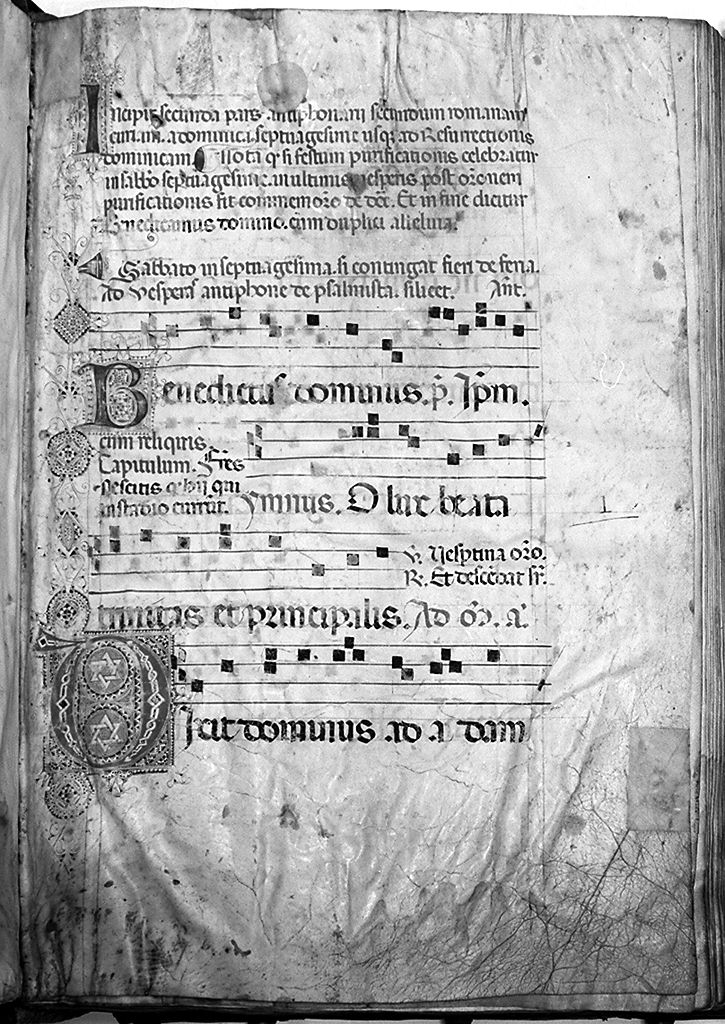 Incipit secunda pars antiphonarii secundum romanam
curiam. a dominica septuagesime usq; ad Resurrectionis
dominicam. Nota q si festum purificationis celebratur
in sabbo septuagesime. in ultimis vesperis post oronem
purificationis fit commemoro de dca. Et in fine dicitur
Benedicamus domino. cum duplici alleluia.
Sabbato in septuagesima. si contingat fieri de feria.
Ad vesperas antiphone de psalmista. silicet. Ant.
Benedictus dominus. p. Ipm.
cum reliquis.
Capitulum. Fres
nescitis q hii qui
in stadio currut.
ymnus. O lux beata
V. Vespertina oro.
R. Et descendat sr.
trinitas et principalis. Ad
Dixit dominus ad adam